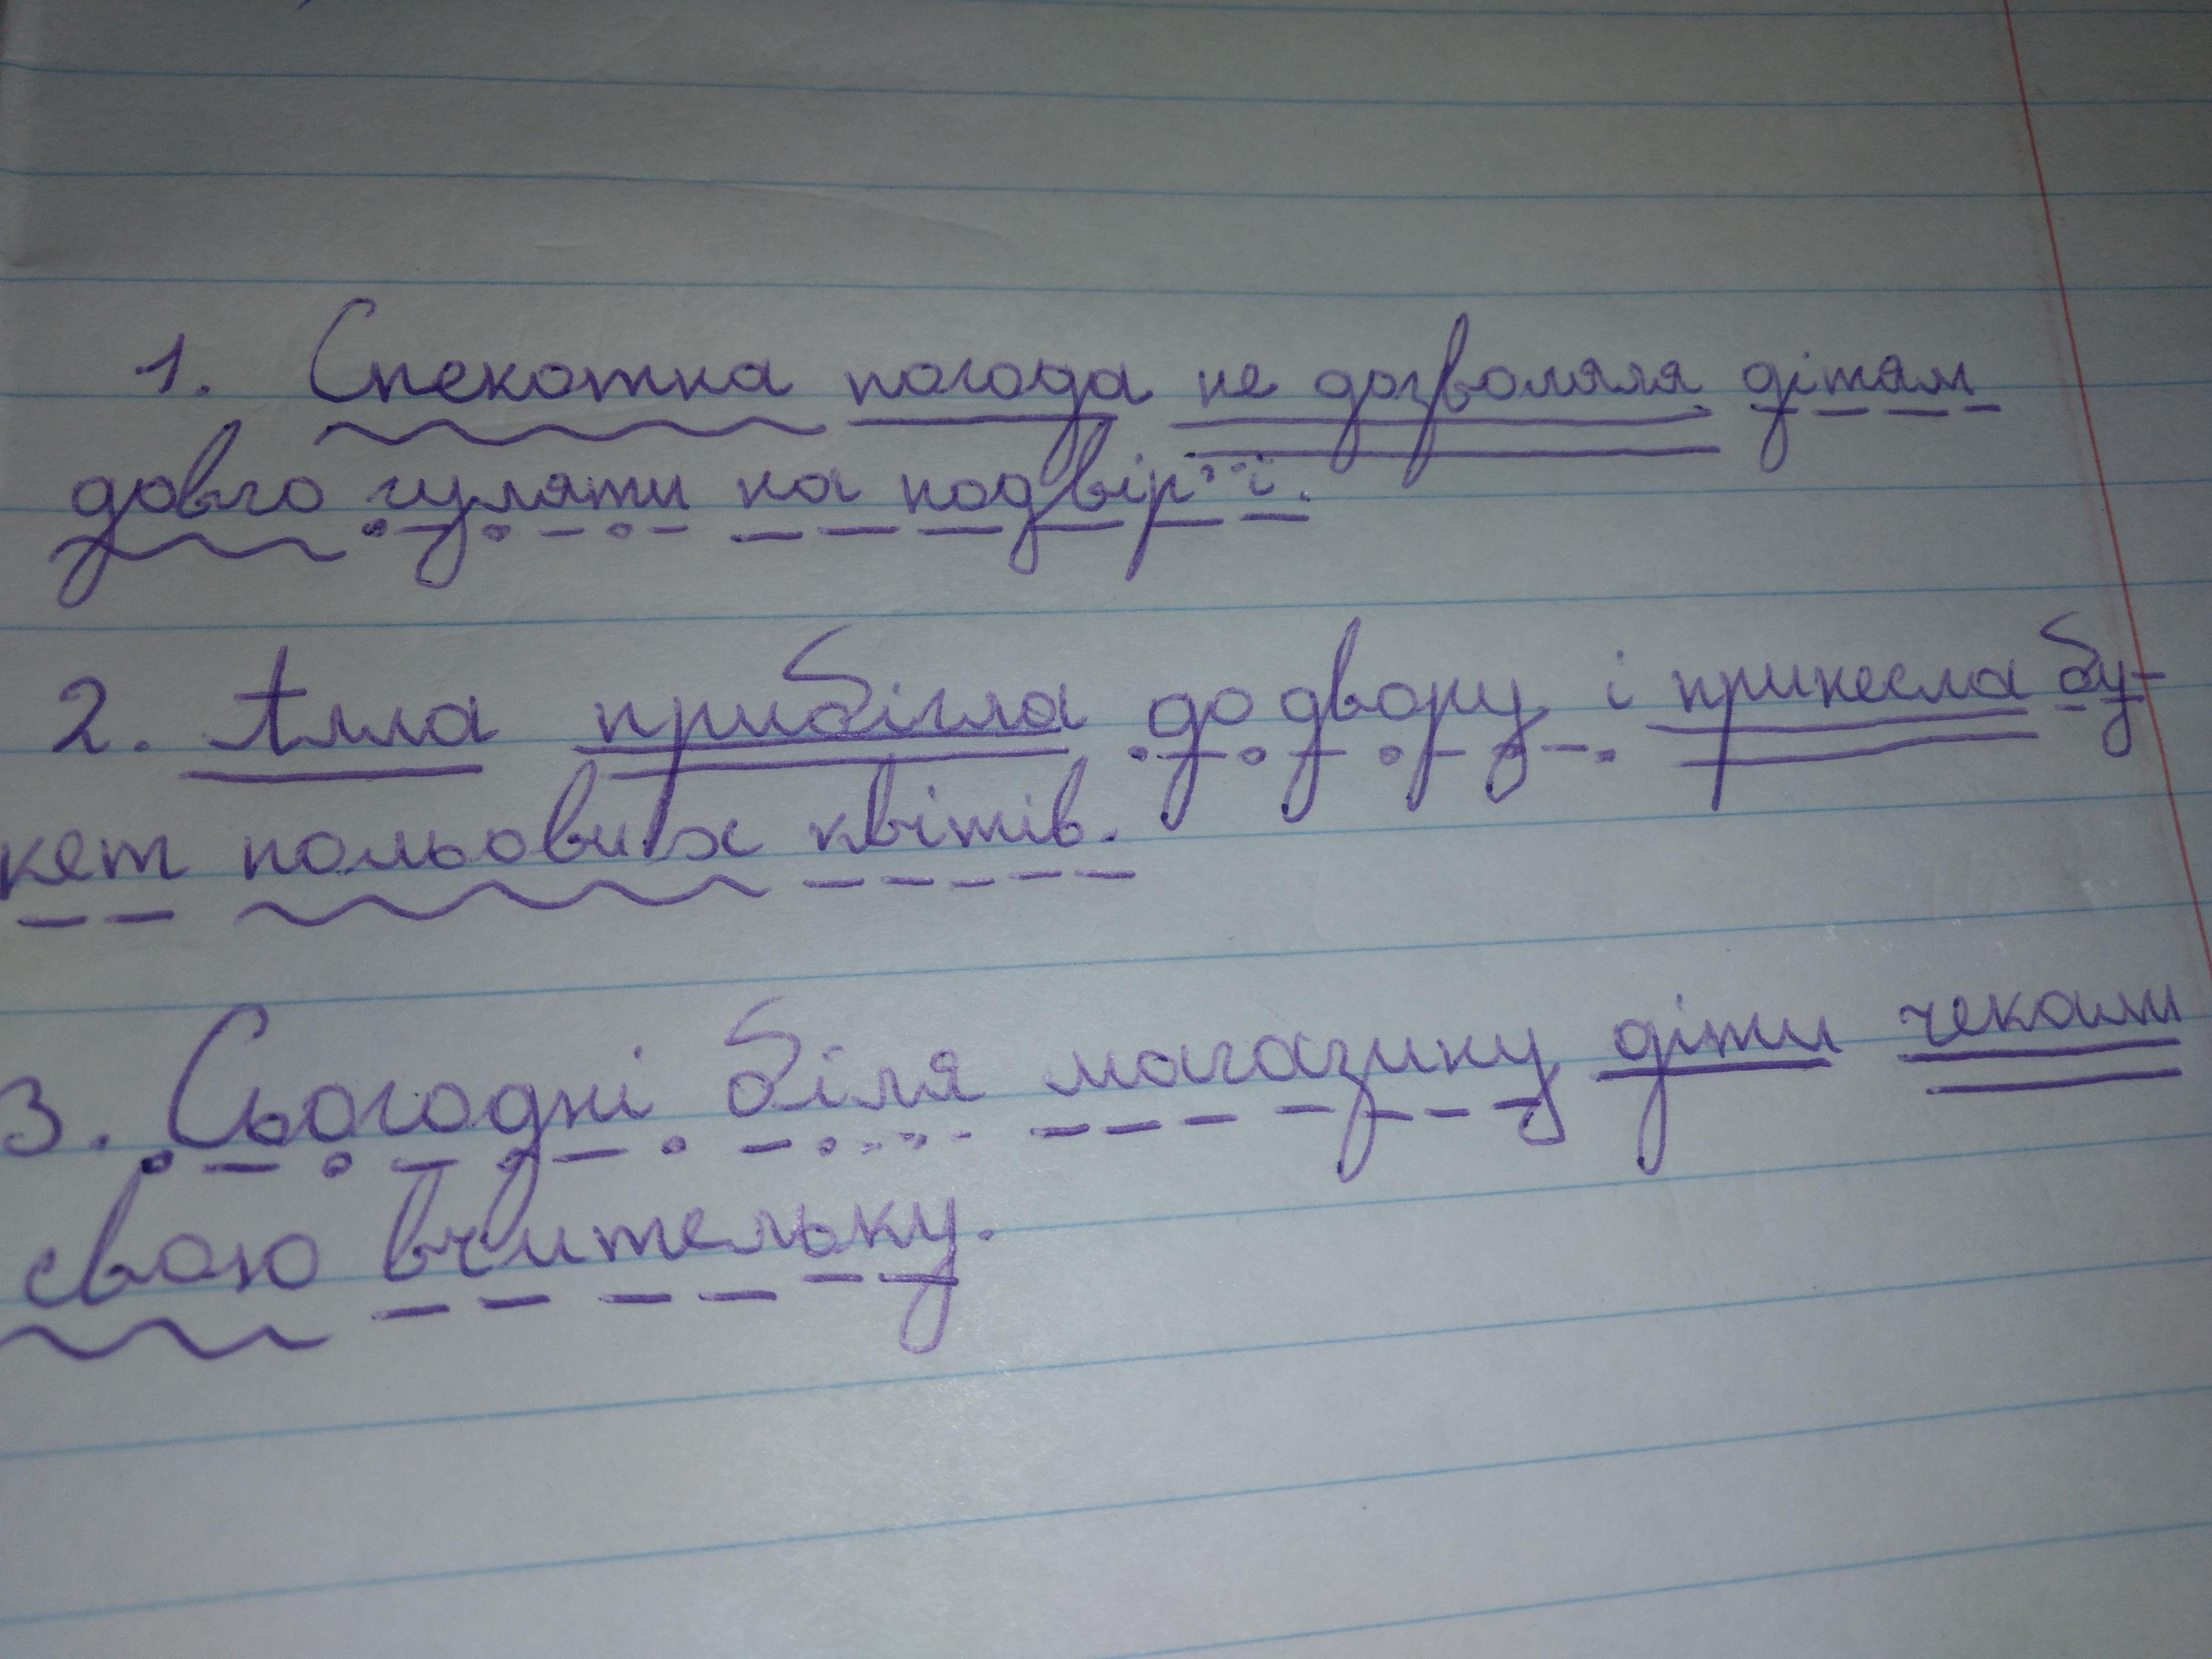 1. Спекотна погода не дозволяла дітям
довго гуляти на подвір'ї.
2. Алла прибігла до двору і принесла бу-
кет польових квітів.
3. Сьогодні біля магазину діти чекали
свою вчительку.